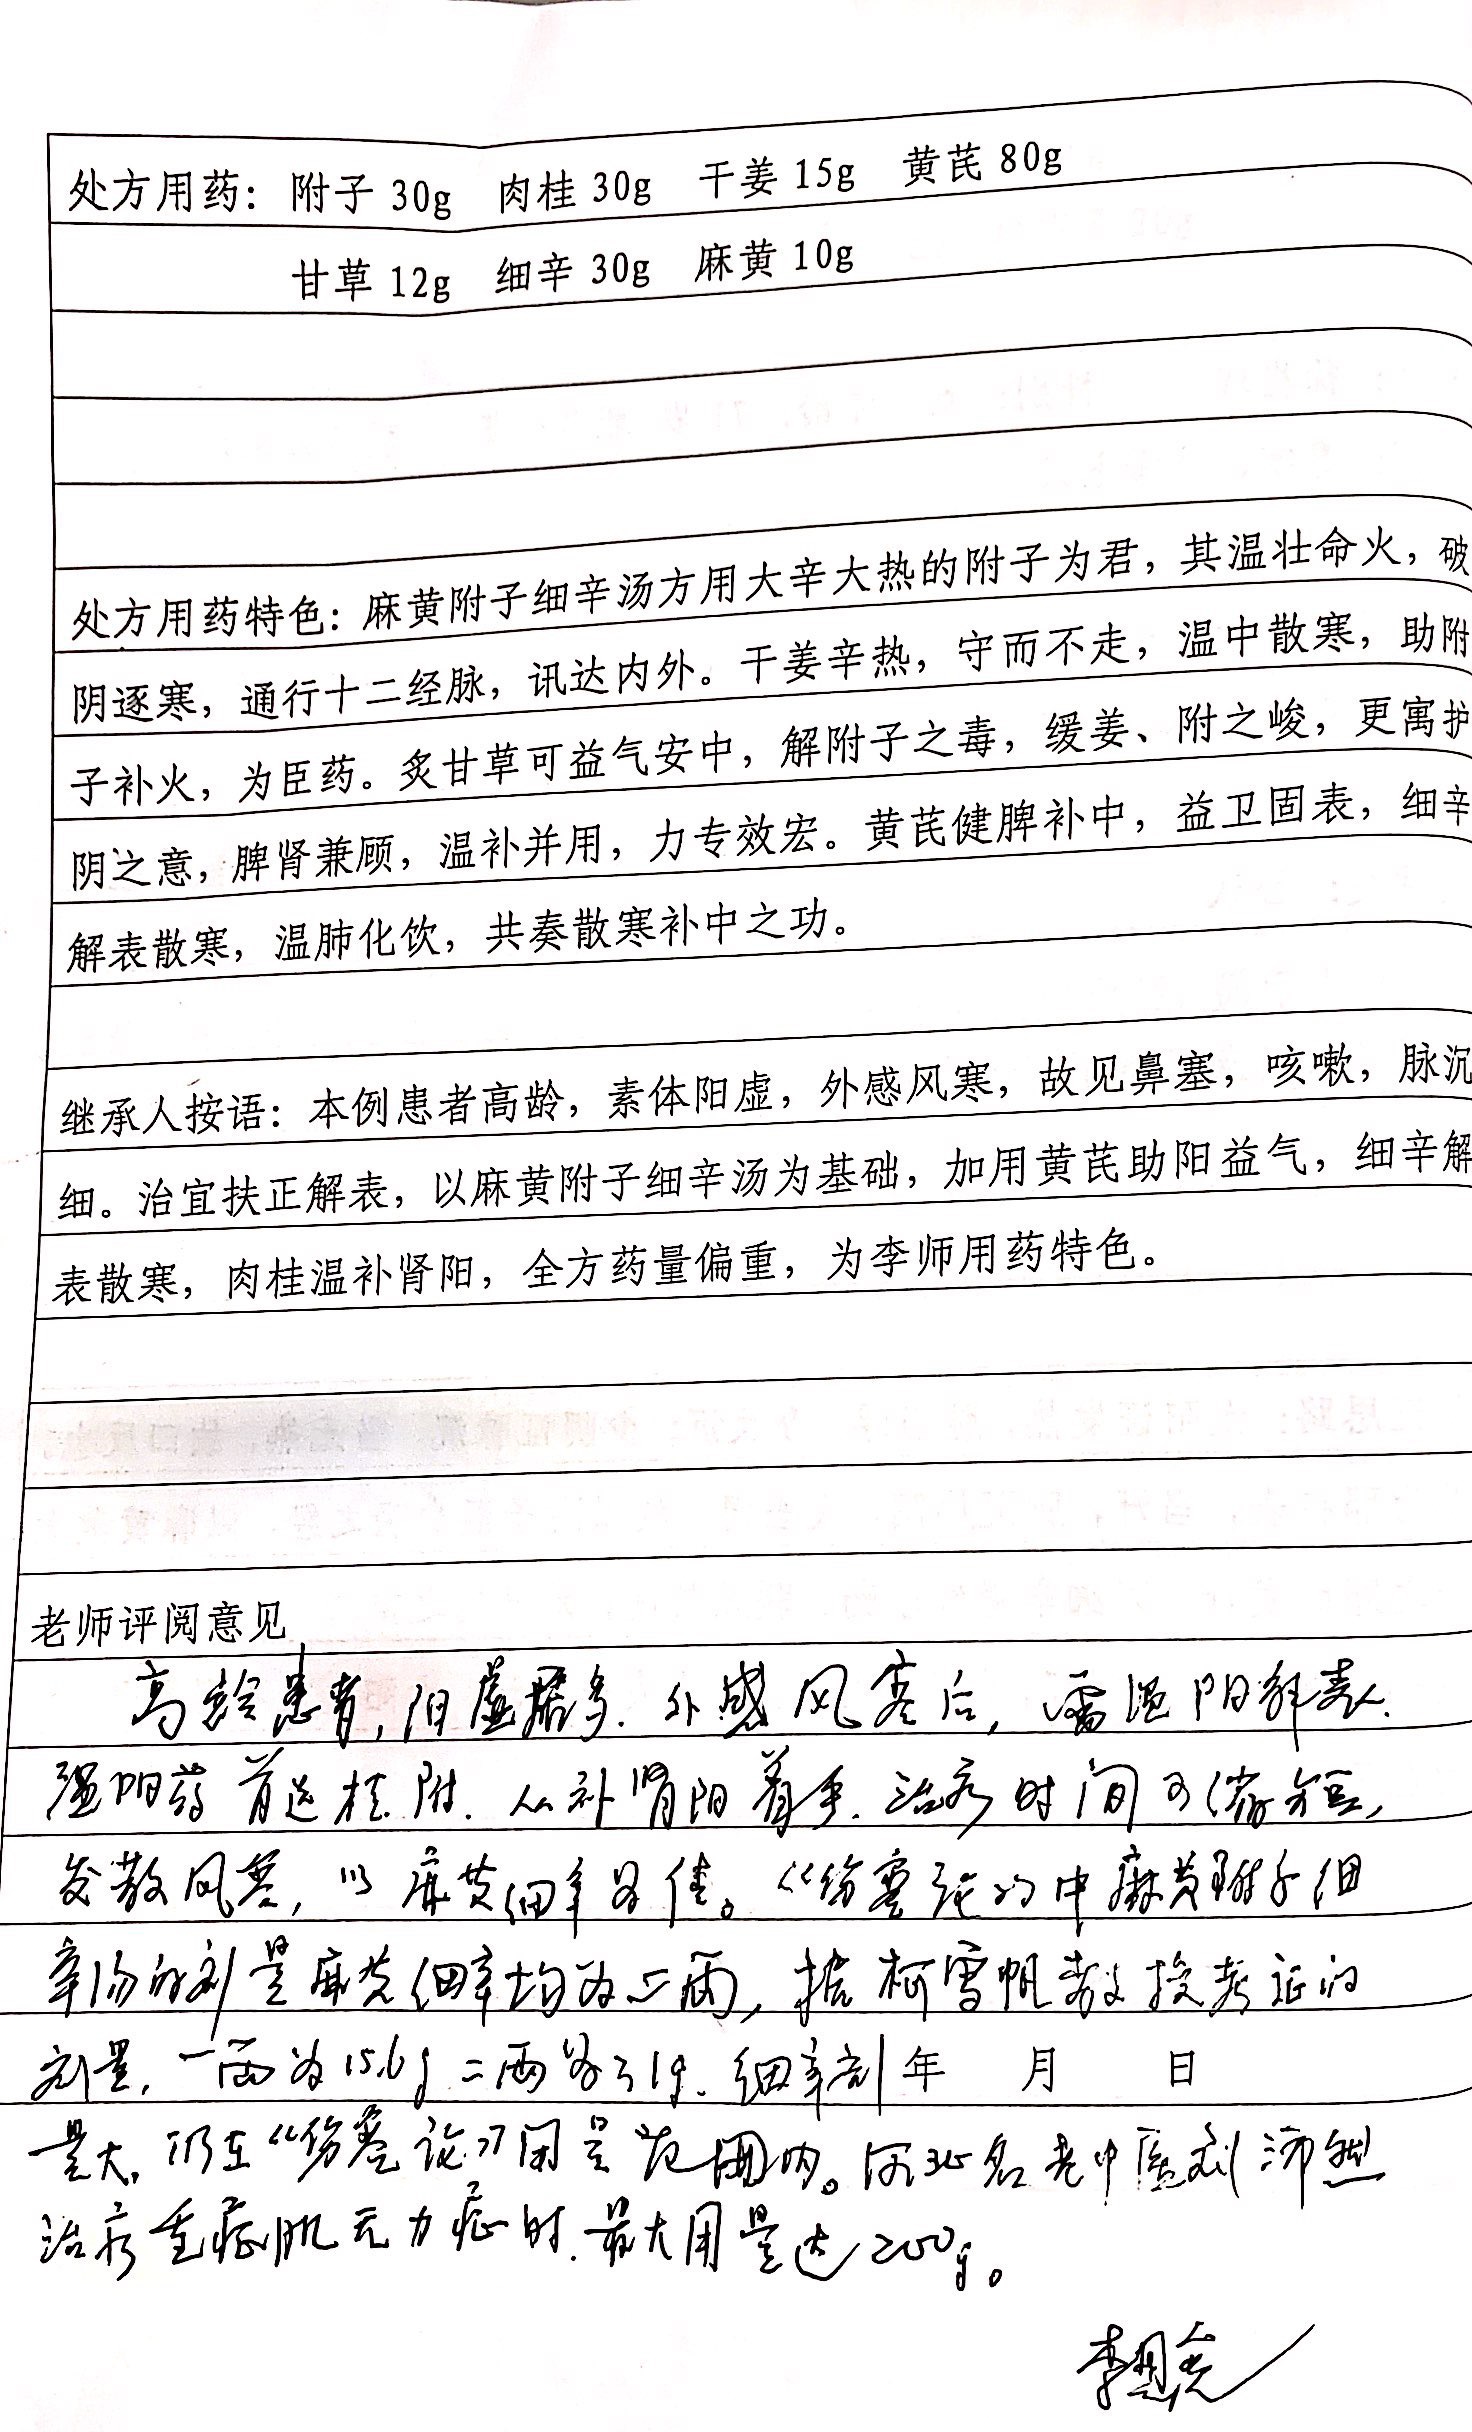 处方用药：附子 30g 肉桂 30g 干姜 15g 黄芪 80g
甘草 12g 细辛 30g 麻黄 10g
处方用药特色：麻黄附子细辛汤方用大辛大热的附子为君，其温壮命火，破
阴逐寒，通行十二经脉，讯达内外。干姜辛热，守而不走，温中散寒，助附
子补火，为臣药。炙甘草可益气安中，解附子之毒，缓姜、附之峻，更寓护
阴之意，脾肾兼顾，温补并用，力专效宏。黄芪健脾补中，益卫固表，细辛
解表散寒，温肺化饮，共奏散寒补中之功。
继承人按语：本例患者高龄，素体阳虚，外感风寒，故见鼻塞，咳嗽，脉沉
细。治宜扶正解表，以麻黄附子细辛汤为基础，加用黄芪助阳益气，细辛解
表散寒，肉桂温补肾阳，全方药量偏重，为李师用药特色。
老师评阅意见
高龄患者，阳虚居多．外感风寒后，需温阳解表．
温阳药首选桂、附．从补肾阳着手．治疗时间可缩短，
发散风寒，以麻黄细辛为佳。《伤寒论》中麻黄附子细
辛汤的剂量麻黄细辛均为二两，据柯雪帆教授考证的
剂量，一两为15.6g 二两为31g．细辛剂 年 月 日
量大，仍在《伤寒论》用量范围内。河北名老中医刘沛然
治疗重症肌无力症时．最大用量达200g。